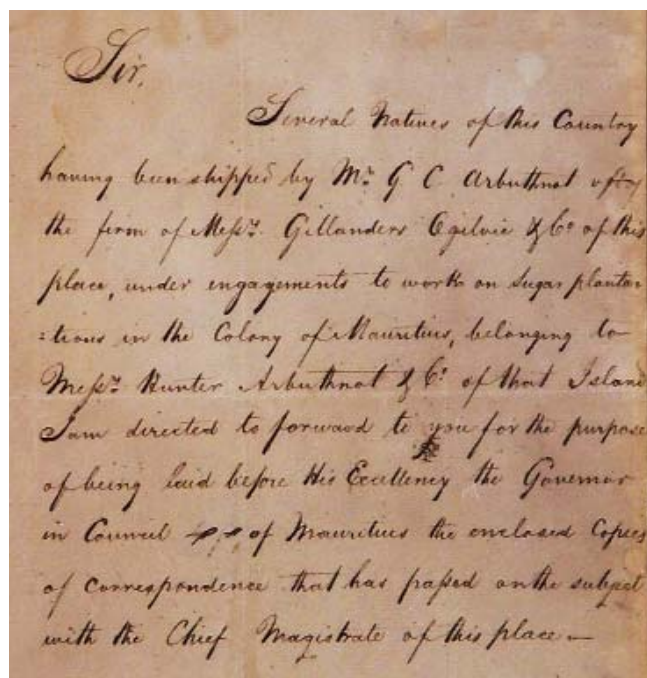 Sir,
Several Natives of this Country
having been shipped by Mr. G C Arbuthnot of
the firm of Messrs. Gillanders Ogilvie & Co of this
place, under engagements to work on Sugar planta
=tions in the Colony of Mauritius, belonging to
Messrs Hunter Arbuthnot & Co. of that Island
I am directed to forward to you for the purpose
of being laid before His Excellency the Governor
in Council of Mauritius the enclosed Copies
of correspondence that has passed on the subject
with the Chief Magistrate of this place—